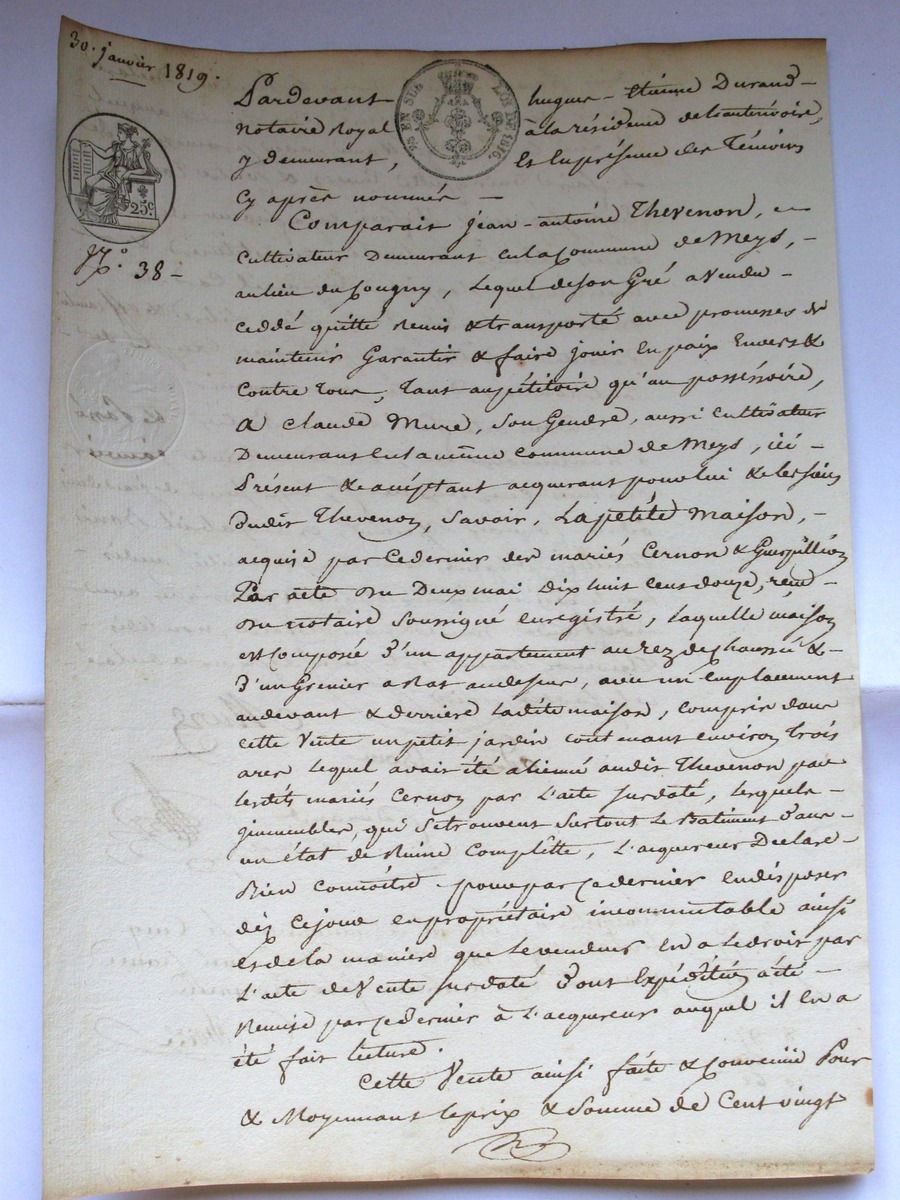 30. janvier 1819.
25 EN SUS LOI DE 1816.
25c.
N.° 38 -
Pardevant hugues - étienne Durand -
notaire Royal à la résidence de
y demeurant, Et En présence des Témoins
Cy après nommés -
Comparait Jean - antoine Thevenon,
Cultivateur Demeurant en la Commune de Meys, -
au lieu du Lequel de Son Gré a Vendu -
ceddé quitté remis & transporté avec promesses de
maintenir Garantir & faire jouir En paix Envers &
Contre Tous, Tant au pétitoire qu'au possessoire,
A Claude Mure, Son Gendre, aussi Cultivateur
Demeurant en la même Commune de Meys, ici -
Présent & acceptant acquerant pour lui & les siens
dudit Thevenon, Savoir, La petite maison, -
acquise par Ce dernier des mariés Cernon &
Par acte du Deux mai Dix huit Cent douze, reçu -
du notaire Soussigné enregistré, Laquelle maison
est Composée d'un appartement au rez de Chaussée & -
d'un Grenier au dessus, avec un Emplacement
au devant & derrière la dite maison, Compris dans
cette Vente un petit jardin contenant environ trois
ares Lequel avait été aliené audit Thevenon par
les dits mariés Cernon par L'acte Susdaté, Lesquels -
immeubles, qui Se trouvent Surtout Le Batiment dans -
un état de Ruine Complette, L'acquereur Declare -
Bien Connoître pour par Ce dernier en disposer
dèz Ce jour en propriétaire incommutable ainsi
et de la maniere que Le vendeur En a Le droit par
L'acte de Vente Susdaté dont Expédition a été -
Remise par Ce dernier à L'acquereur auquel il En a
été fait lecture.
Cette Vente ainsi faite & Convenüe Pour
& Moyennant le prix & Somme de Cent vingt